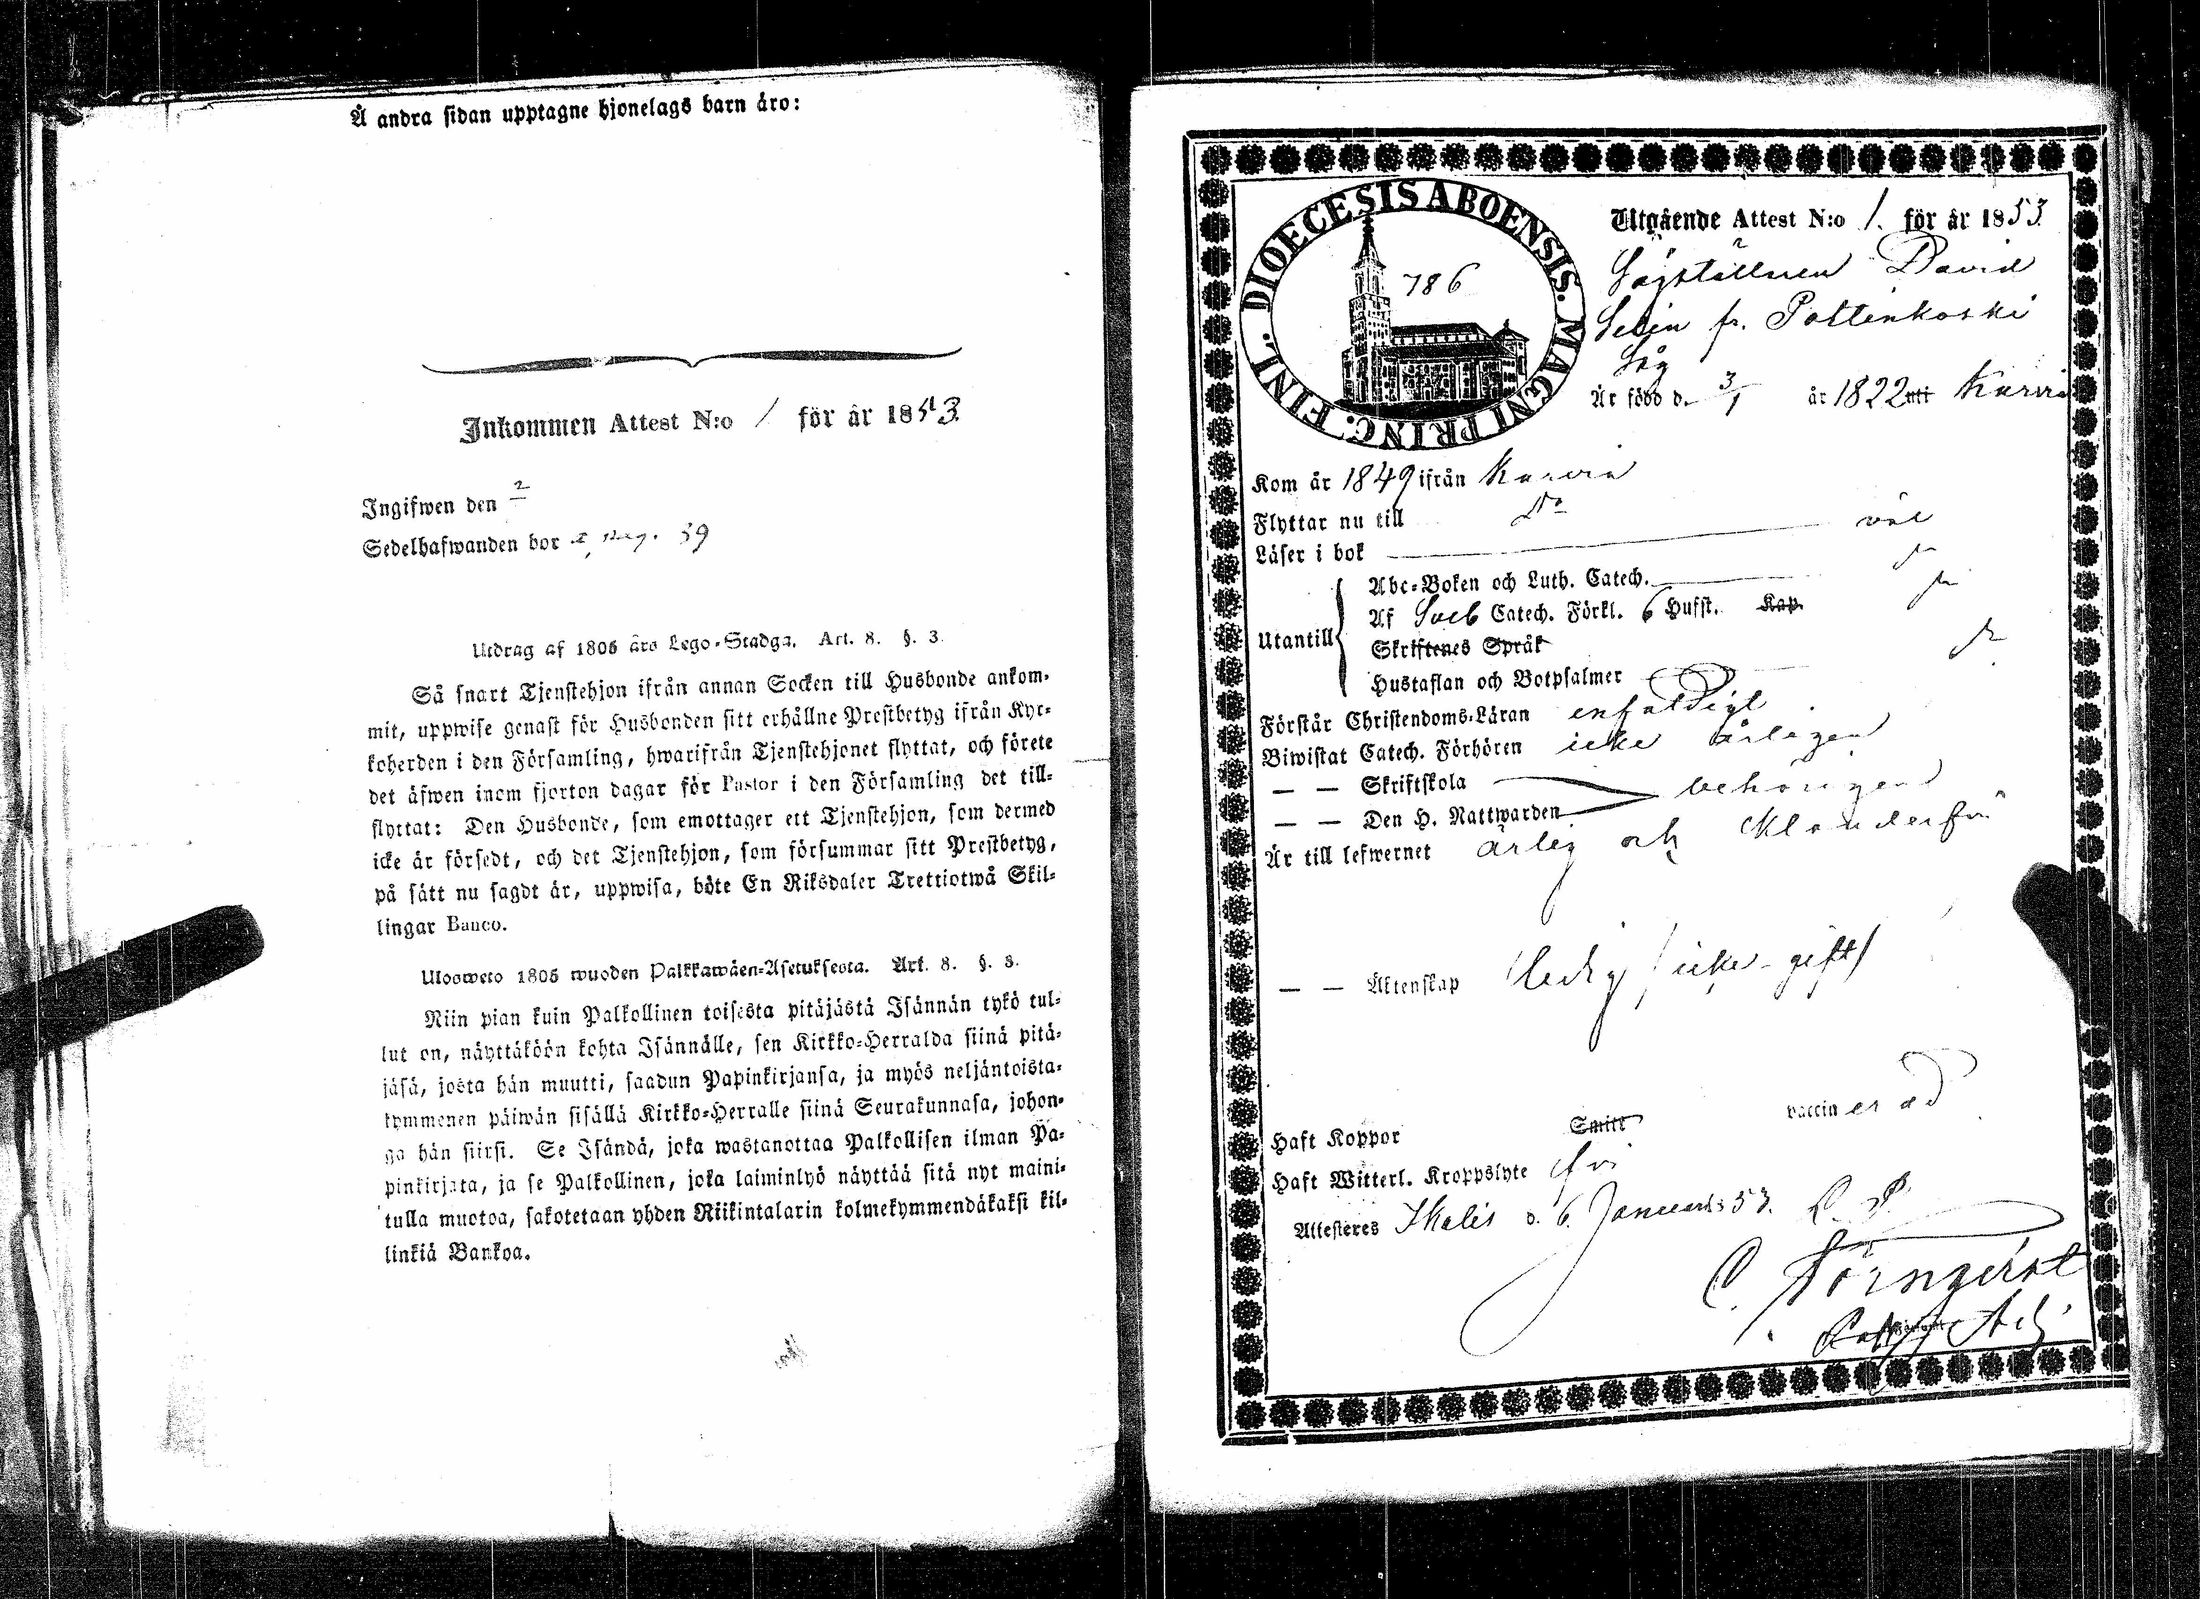 Å andra sidan upptagne hjonelags barn äro:
Inkommen Attest N:o 1 för år 1853
Ingifwen den 2
Sedelhafwanden bor 59
Utdrag af 1805 års Lego-Stadga. Art. 8. §. 3.
Så snart Tjenstehjon ifrån annan Socken till Husbonde ankom-
mit, uppwise genast för Husbonden sitt erhållne Prestbetyg ifrån Kyr-
koherden i den Församling, hwarifrån Tjenstehjonet flyttat, och förete
det äfwen inom fjorton dagar för Pastor i den Församling det till-
flyttat: Den Husbonde, som emottager ett Tjenstehjon, som dermed
icke är försedt, och det Tjenstehjon, som försummar sitt Prestbetyg,
på sätt nu sagdt är, uppwisa, böte En Riksdaler Trettiotwå Skil-
lingar Banco.
Ulosweto 1805 wuoden Palkkawäen-Asetuksesta. Art. 8. §. 3.
Niin pian kuin Palkollinen toisesta pitäjästä Isännän tykö tul-
lut on, näyttäköön kohta Isännälle, sen Kirkko-Herralda siinä pitä-
jäsä, josta hän muutti, saadun Papinkirjansa, ja myös neljäntoista-
kymmenen päiwän sisällä Kirkko-Herralle siinä Seurakunnasa, johon-
ga hän siirsi. Se Isändä, joka wastanottaa Palkollisen ilman Pa-
pinkirjata, ja se Palkollinen, joka laiminlyö näyttää sitä nyt maini-
tulla muotoa, sakotetaan yhden Riikintalarin kolmekymmendäkaksi kil-
linkiä Bankoa.
DIOECESIS ABOENSIS. MAGNI PRINC. FINL.
786
Utgående Attest N:o 1. för år 1853
Sågställaren David
Selin fr. Pottinkoski
Såg
Är född d. 3/1 år 1822 uti Karvia
Kom år 1849 ifrån Karvia
Flyttar nu till Do
Läser i bok väl
Abc-Boken och Luth. Catech.
Af Sveb Catech. Förkl. 6 Hufst. Kap.
Utantill
Skriftenes Språk
Hustaflan och Botpsalmer
Förstår Christendoms-Läran enfaldigt
Biwistat Catech. Förhören icke årligen
— — Skriftskola
— — Den H. Nattwarden behörigen
Är till lefwernet ärlig och klanderfri
— — Äktenskap ledig /icke gift/
Haft Koppor Smitt vaccinerad
Haft Witterl. Kroppslyte fri
Attesteras Ikalis d. 6. Januarii 53.